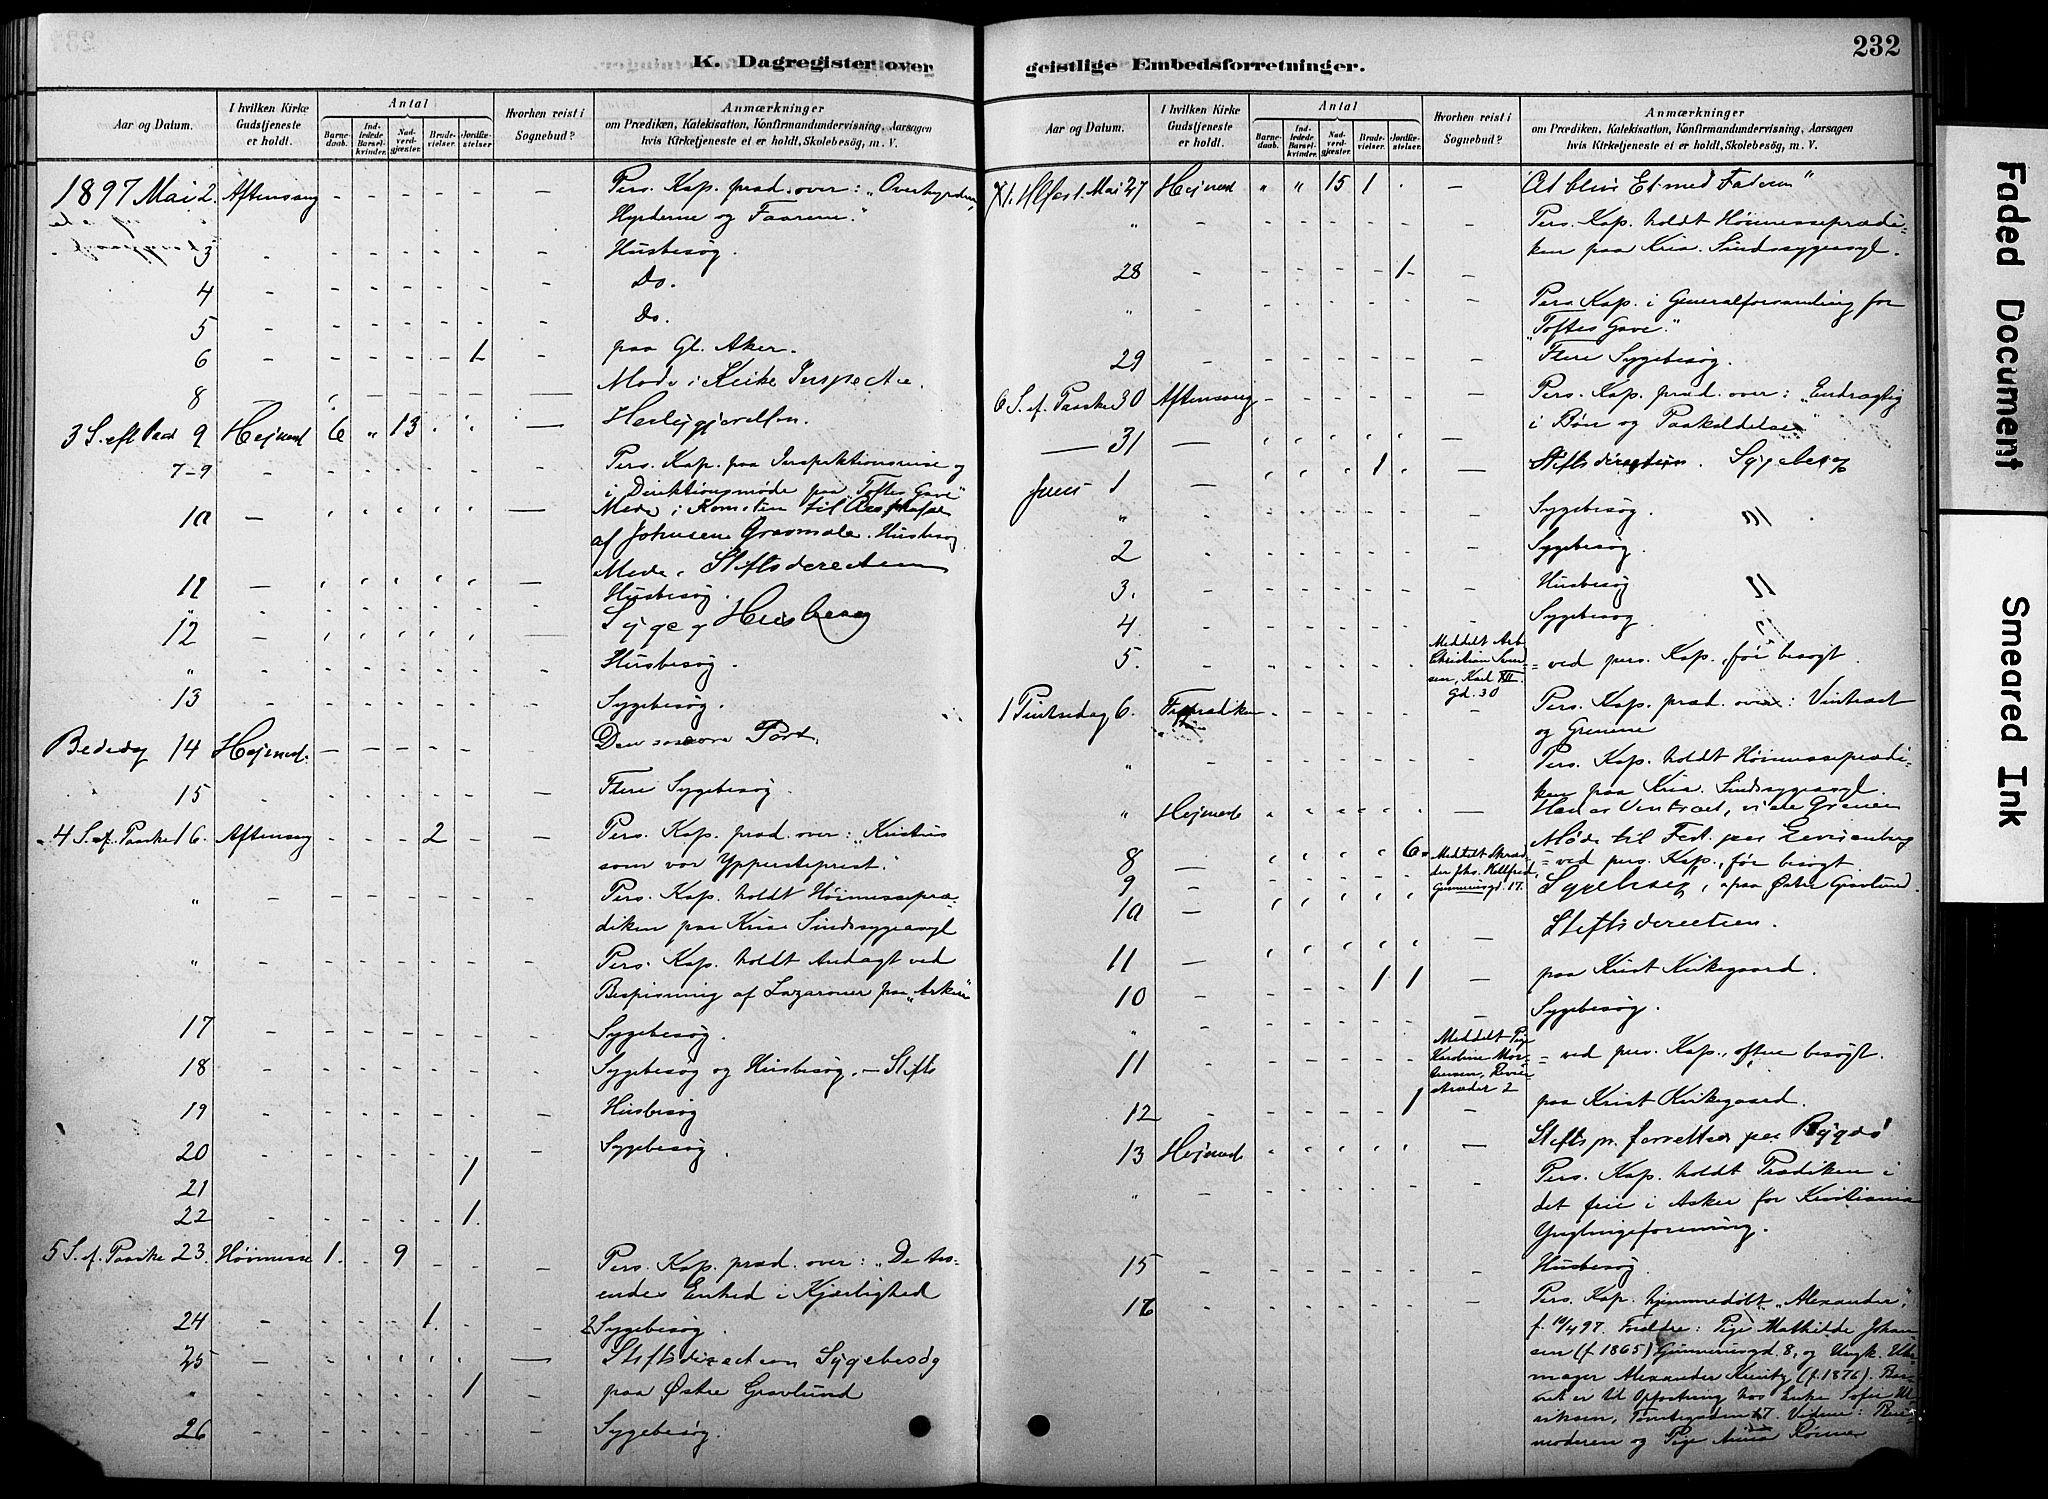 232
K. Dagregister over
geistlige Embedsforretninger.
Aar og Datum.
I hvilken Kirke Gudstjeneste er holdt.
Antal
Barnedaab.
Indledede Barselkvinder.
Nadverdgjæster.
Brudevielser.
Jordfæstelser.
Hvorhen reist i Sognebud?
Anmærkninger
om Prædiken, Katekisation, Konfirmandundervisning, Aarsagen
hvis Kirketjeneste ei er holdt, Skolebesøg, m. V.
1897 Mai 2. Aftensang - - - - - - Pers. Kap. præd. over: „Overhyrden,
Hyrderne og Faarene."
3 - Husbesøg.
4 - Do.
5 - Do.
6 - 1 - paa Gl. Aker.
8 Møde i
3 S. eft. Paas 9 Hejmed 6 " 13
7-9 - Pers. Kap. paa Inspektionsreise og
i Direktionsmøde paa „Toftes Gave"
10 - Møde i Komiteen til
af Johnsen Gravmæle. Husbesøg
11 - Møde i Stiftsdirectionen
" Husbesøg.
12 - Syge og Husbesøg
" Husbesøg.
13 - Sygebesøg.
Bededag 14 Hejmed. Den snævre Port.
15 - Flere Sygebesøg.
4 S. ef. Paaske 16. Aftensang - - - 2 - - Pers. Kap. præd. over: „Kristus
som vor Ypperstepræst."
" Pers. Kap. holdt Høimesseprædiken paa Kria Sindssygeasyl
" Pers. Kap. holdt Andagt ved
Bespisning af Lazaroner paa „Arken"
17 - Sygebesøg.
18 - Sygebesøg og Husbesøg. - Stifts
19 - Husbesøg
20 - Sygebesøg.
21 1
22 - 1.
5 S. ef. Paaske 23. Høimesse 1. - 9 - - - Pers. Kap. præd. over: „De troendes Enhed i Kjærlighed
24 - 1. - 2 Sygebesøg.
25 - Stiftsdirection Sygebesøg
" 1 - paa Østre Gravlund
26 - Sygebesøg.
Aar og Datum.
I hvilken Kirke Gudstjeneste er holdt.
Antal
Barnedaab.
Indledede Barselkvinder.
Nadverdgjæster.
Brudevielser.
Jordfæstelser.
Hvorhen reist i Sognebud?
Anmærkninger
om Prædiken, Katekisation, Konfirmandundervisning, Aarsagen
hvis Kirketjeneste ei er holdt, Skolebesøg, m. V.
Mai 27 Hejmed " " 15 1 - - At blive Et med Faderen"
" Pers. Kap. holdt Høimesseprædiken paa Kria. Sindssygeasyl.
28 - 1 -
" Pers. Kap. i Generalforsamling for
„Toftes Gave."
29 - Flere Sygebesøg.
6 S. ef. Paaske 30 Aftensang - Pers. Kap. præd. over: „Endrægtig
i Bøn og Paakaldelse"
31 - Stiftsdirection. Sygebesøg
Juni 1 - 1 -
" Sygebesøg.
2 Sygebesøg.
3. Husbesøg
4. Sygebesøg
5. Meddelt Arb.
Christian Svendsen, Karl XII.
Gd. 30
= ved pers. Kap., før besøgt.
1 Pintsedag 6. Froprædiken - Pers. Kap. præd. over: Vintræet
og Grenene
" Pers. Kap. holdt Høimesseprædiken paa Kria. Sindssygeasyl.
" Hejmed Han er Vintræet, vi ere Grenene
8 - 6 Møde til Fest paa
Meddelt Skrædder Jhs. Killfred,
Gunnerusgd. 17.
= ved pers. Kap., før besøgt
9 - Sygebesøg, paa Østre Gravlund.
10 - Stiftsdirectien.
11 -
10 - 1 1 - paa Krist Kirkegaard.
" Sygebesøg.
11 - Meddelt Pige
Karoline Mortensen, Revierstræder 2
= ved pers. Kap., oftere besøgt.
12 - 1 - paa Krist Kirkegaard.
13 Hejmed - Stiftspr. forretter paa Bygdø
" Pers. Kap. holdt Prædiken i
det frie i Asker for Kristiania
Ynglingeforening.
15 - Husbesøg.
16 - Pers. Kap. hjemmedøbt „Alexander",
f. 10/4 97. Forældre: Pige Mathilde Johansen (f. 1865) Gunnerusgd. 8, og Ungk. Uhrmager Alexander (f. 1876). Barnet er til Opfostring hos Enke Sofie Ulriksen, Tomtegaden 17. Vidne: Pleiemoderen og Pige Anna Rønne
Faded Document
Smeared Ink